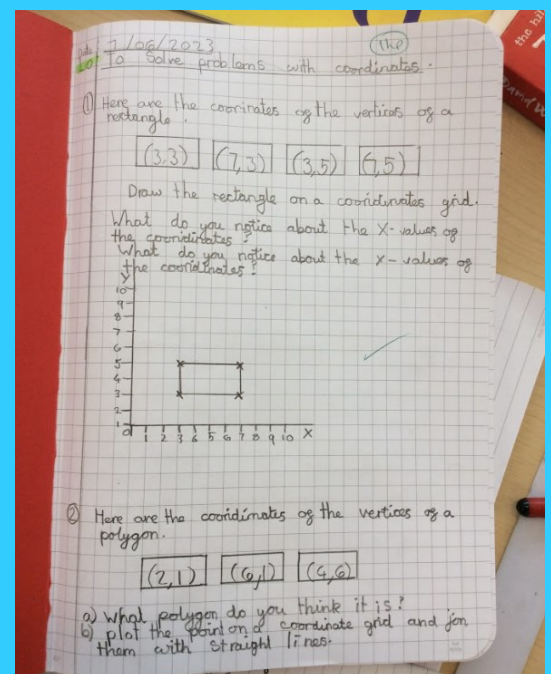 Date 7/06/2023 The
LO: To Solve problems with coordinates.
① Here are the coorinates of the vertices of a
rectangle.
(3,3) (7,3) (3,5) (7,5)
Draw the rectangle on a cooridinates grid.
What do you notice about the X-values of
the cooridinates?
What do you notice about the X-values of
the cooridinates?
y
10
9
8
7
6
5
4
3
2
1
0 1 2 3 4 5 6 7 8 9 10 X
② Here are the cooridinates of the vertices of a
polygon.
(2,1) (6,1) (4,6)
a) What polygon do you think it is?
b) plot the point on a coordinate grid and jon
them with straight lines.
David